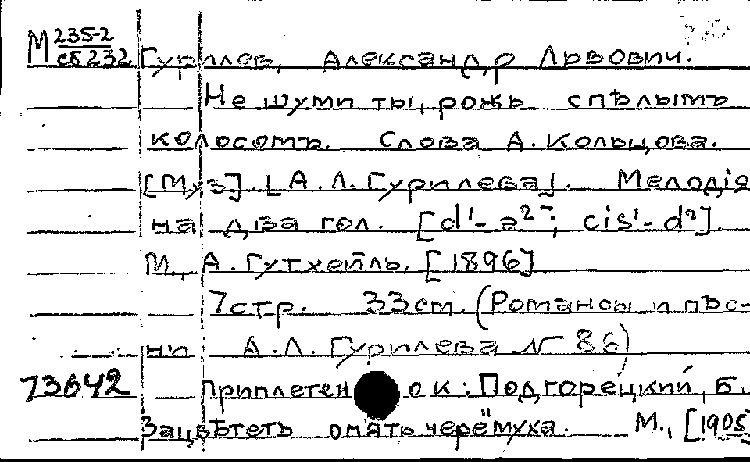 М 235-2
сб 232 Гурилев, Александр Львович.
Не шуми ты, рожь спѣлымъ
колосомъ. Слова А. Кольцова.
[Муз]. [А.Л. Гурилева]. Мелодія
на два гол. [d¹-a²; cis¹-d²].
М., А. Гутхейль. [1896]
7 стр. 33 см. (Романсы и пѣс-
ни А.Л. Гурилева № 86)
73642 Приплетено к: Подгорецкий, Б.
Зацвѣтетъ опять черёмуха. М., [1905]